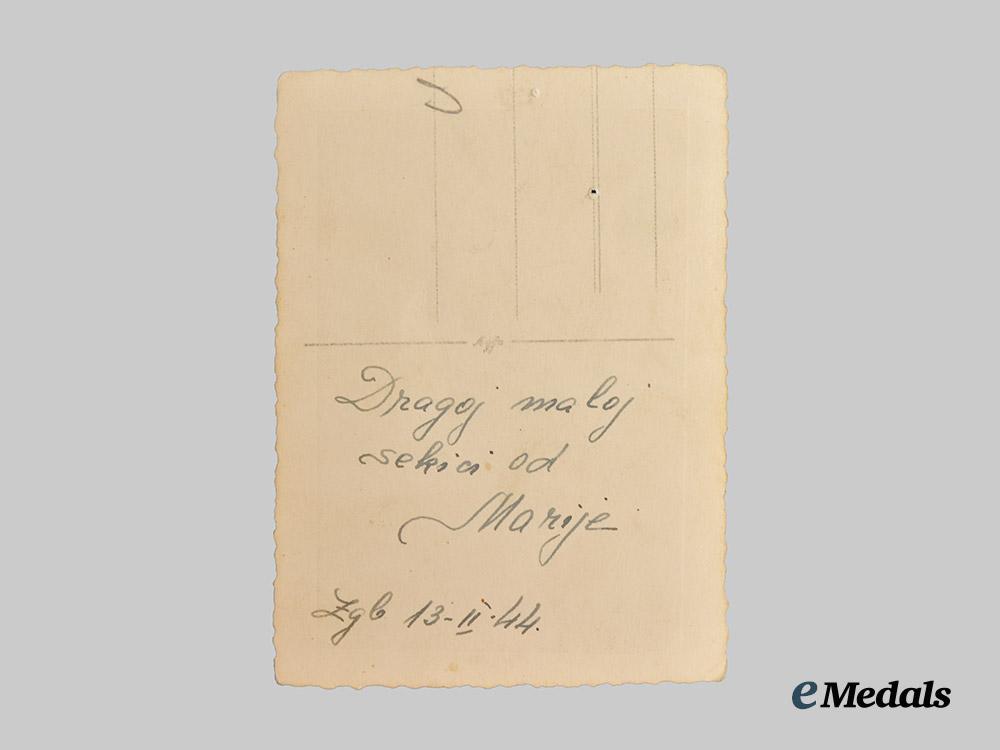 Agfa
Dragoj maloj
sekici od
Marije
Zgb 13-II-44.
eMedals